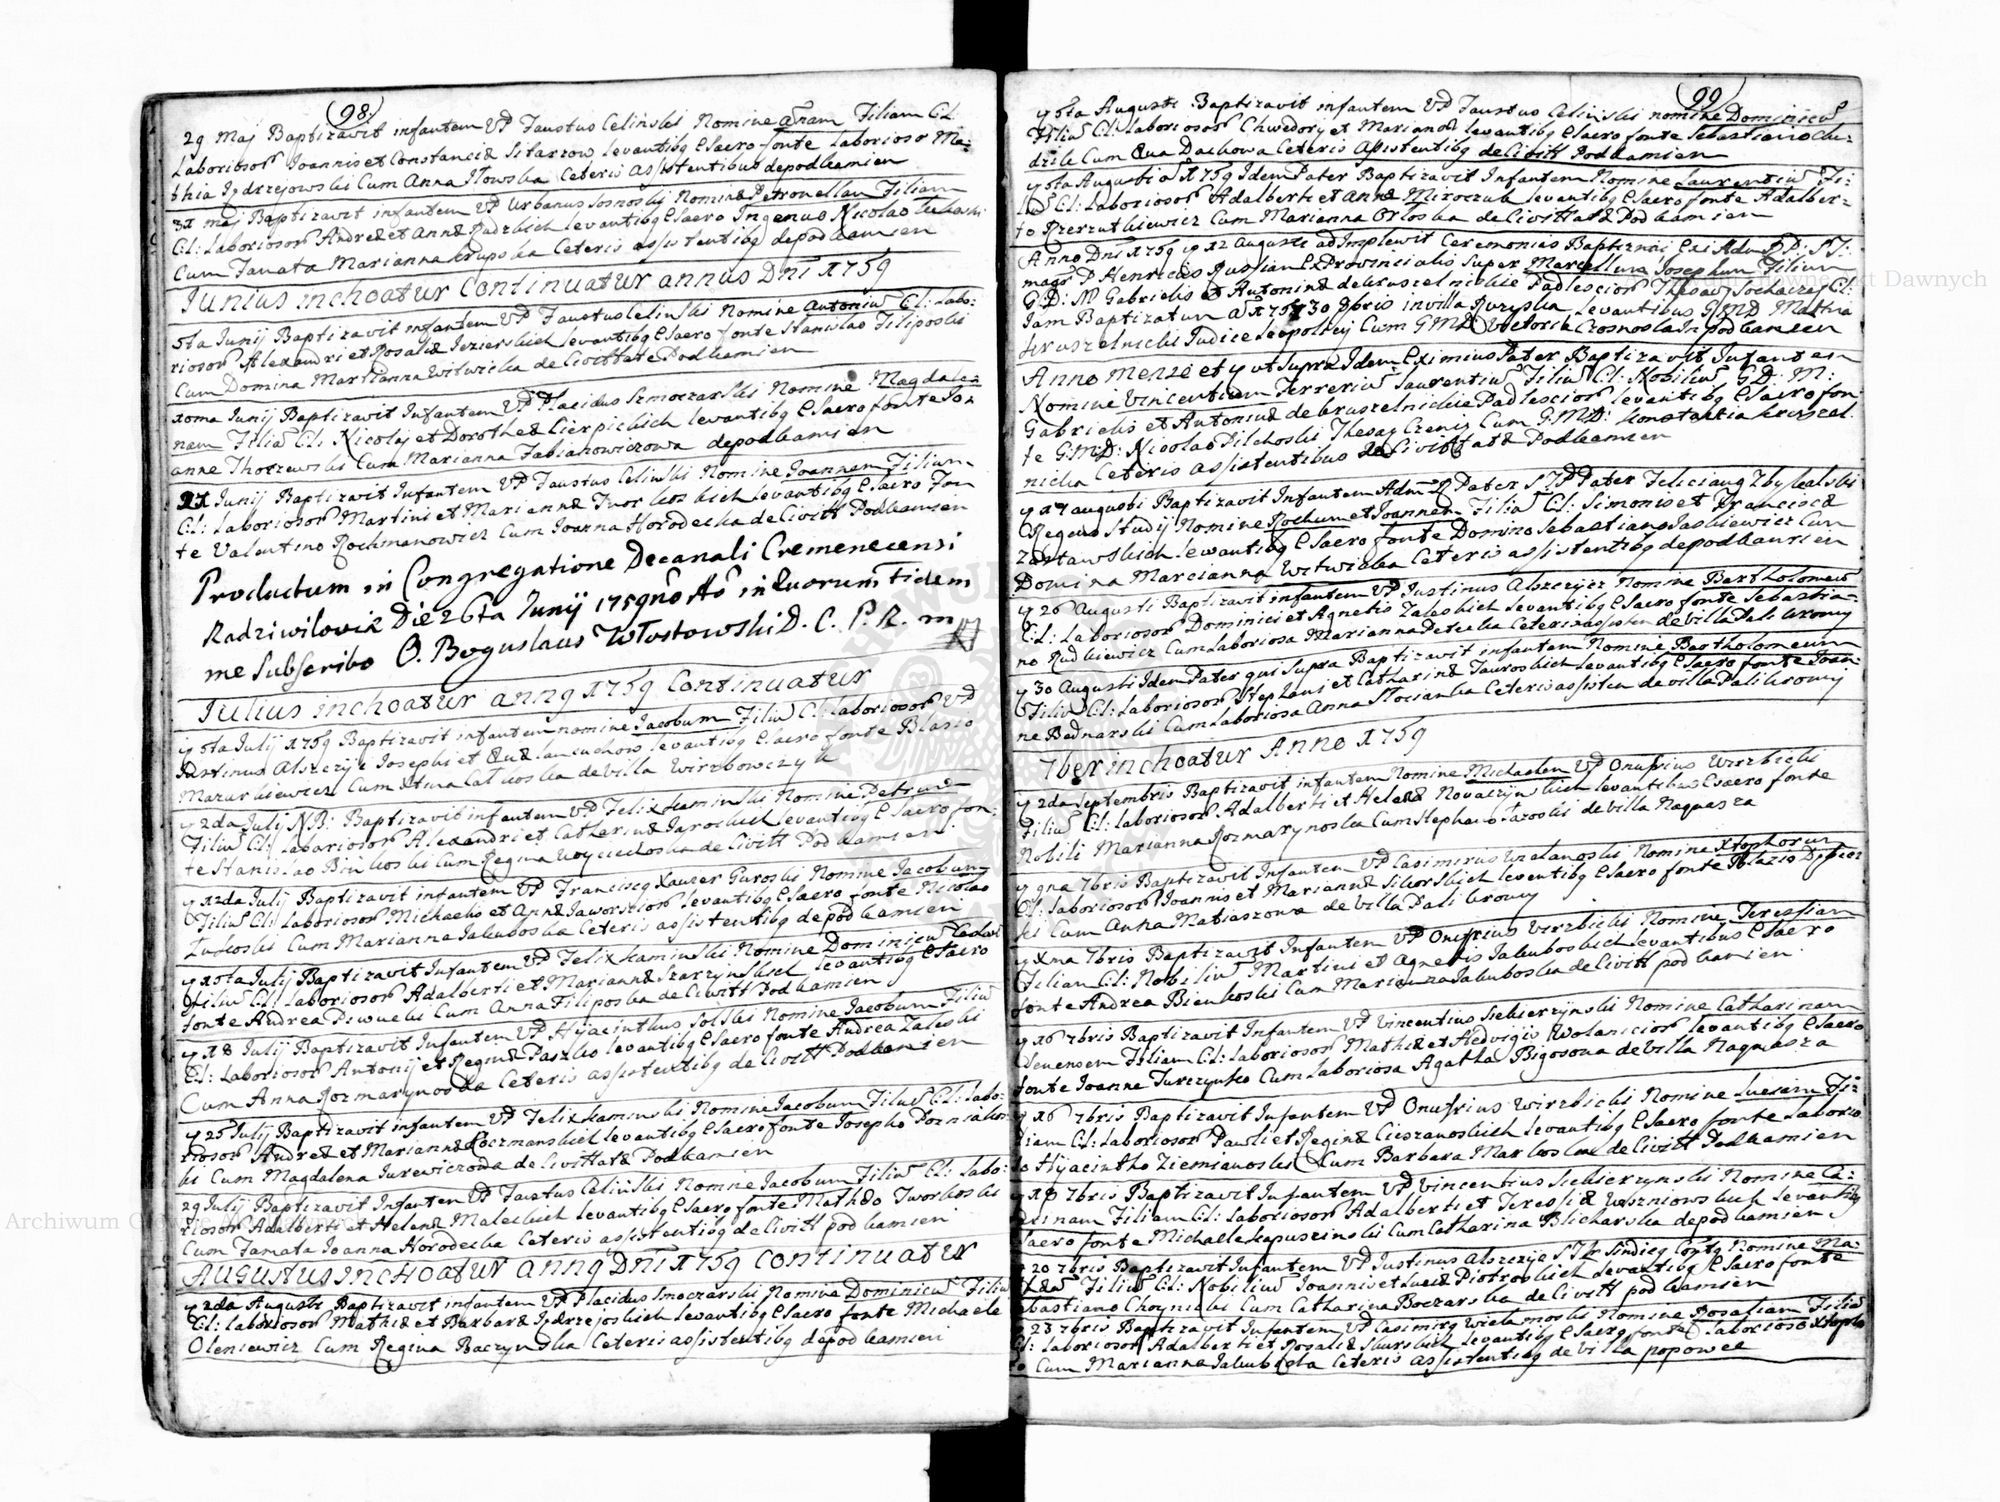 (98)
29 Maj Baptizavit infantem VP Faustus Celinski Nomine Annam Filiam CL:
Laboriosor Joannis et Constanciæ Sitarzow levantibg C Sacro fonte Laborioso Ma=
thia Jędrzejowski Cum Anna Ceteris assistentibus de podkamien
31 maj Baptizavit infantem VP Urbanus Sosnoski Nominæ Petronellam Filiam
CL: Laboriosor Andreæ et Annæ Rudzkich levantibg C Sacro Ingenuo Nicolao
Cum Famata Marianna Krupska Ceteris assistentibg de podkamien
Junius inchoatur Continuatur annus Dni 1759
5ta Junij Baptizavit infantem VP Faustus Celinski Nomine Antoniu CL: Labo:
riosor Alexandri et Rosaliæ Jezierskich levantibg C Sacro fonte Stanislao Filiposki
Cum Domina Marianna Witwicka de Civittate Podkamien
10ma Junij Baptizavit Infantem VP Placidus Smoczarski Nomine Magdale=
nam Filia CL: Nicolaj et Dorotheæ Cierpickich levantibg C Sacro fonte Jo=
anne Thorzewski Cum Marianna Fabianowiczowa de podkamien
21 Junij Baptizavit Infantem VP Faustus Celinski Nomine Joannem Filium
CL: Laboriosor Martini et Mariannæ levantibg C Sacro Fon
te Valentino Rochmanowicz Cum Joanna Horodecka de Civitt Podkamien
Productum in Congregatione Decanali Cremenecensi
Radziwiloviæ Die 26ta Junij 1759no Ao in Quorum Fidem
me Subscribo O. Boguslaus Wlostowski D. C. P. R. m
Julius inchoatur anng 1759 Continuatur
y 5ta Julij 1759 Baptizavit infantem nomine Jacobum Filiu CL: Laboriosor VP
Justinus Alszczyc Josephi et Evæ Lancuchow levantibg C Sacro fonte Blasio
Mazurkiewicz Cum Xtina de Villa Wierzbowczyk
y 2da Julij NB: Baptizavit infantem VP Felix Kaminski Nomine Petrum
Filiu CL: Laboriosor Alexandri et Catharinæ Jarockich levantibg C Sacro fon:
te Stanislao Cum Regina Woyciechoska de Civitt Podkamien
y 12da Julij Baptizavit infantem VP Franciscg Xawer Guroski Nomine Jacobum
Filiu CL: Laboriosor Michaelis et Annæ Jaworscior levantibg C Sacro fonte Nicolao
Cum Marianna Jakuboska Ceteris assistentibg de podkamien
y 15ta Julij Baptizavit Infantem VP Felix Kaminski Nomine Dominicu
Filiu CL: Laboriosor Adalberti et Mariannæ Szarzynskich levantibg C Sacro
fonte Andrea Cum Anna Filiposka de Civitt Podkamien
y 18 Julij Baptizavit Infantem VP Hijacinthus Solski Nomine Jacobum Filiu
CL: Laboriosor Antonij et Reginæ Paszko levantibg C Sacro fonte Andrea Zaleski
Cum Anna Rozmarynoska Ceteris assistentibg de Civitt Podkamien
y 25 Julij Baptizavit infantem VP Felix Kaminski Nomine Jacobum Filiu CL: Labo:
riosor Andreæ et Mariannæ Koczmanskich levantibg C Sacro fonte Josepho
ki Cum Magdalena Jurewiczowa de Civittatæ Podkamien
29 Julij Baptizavit Infantem VP Faustus Celinski Nomine Jacobum Filiu CL: Labo:
riosor Adalberti et Helenæ Maleckich levantibg C Sacro fonte Mathæo Tworkoski
Cum Famata Joanna Horodecka Ceteris assistentibg de Civitt podkamien
Augustus inchoatur anng Dni 1759 Continuatur
y 2da Augusti Baptizavit infantem VP Placidus Smoczarski Nomine Dominicu Filiu
CL: Laboriosor Mathiæ et Barbaræ Jędrzejoskich levantibg C Sacro fonte Michaele
Oleniewicz Cum Regina Baczynska Ceteris assistentibg de podkamien
(99)
y 6ta Augusti Baptizavit infantem VP Faustus Celinski nomine Dominicu
Filiu CL: Laboriosor Chwedory et Mariannæ levantibg C Sacro fonte Sebastiano
Cum Eva Dachowa Ceteris assistentibg de Civitt Podkamien
y 6ta Augusti a 1759 Idem Pater Baptizavit Infantem Nomine Laurentiu Fi:
liu CL: Laboriosor Adalberti et Annæ Miroczuk levantibg C Sacro fonte Adalber=
to Przerzutkiewicz Cum Marianna Orloska de Civittatæ Podkamien
Anno Dni 1759 y 12 Augusti adImplewit Ceremonias Baptizmi Exi Adm PP: ST:
magr P Henricus Russian ExProvincialis Super Marcellum Josephum Filium
GD: M Gabrielis et Antoninæ de Kruszelnickie Padlescior Thesau Sochaczef CL:
Iam Baptizatum a 1757 30 9bris in villa levantibus GMD Mathia
Kruszelnicki Judice Leopoldij Cum GMD: Victoria Czosnoska in podkamien
Anno Mense et y ut supra Idem Eximius Pater Baptizavit Infantem
Nomine Vincentium Ferreriu Laurentiu Filiu CL: Nobiliu GD: M:
Gabrielis et Antoninæ de Kruszelnickie Padlescior levantibg C Sacro fon
te GMD: Nicolao Pilchoski Thesau Czencij Cum GMD: Konstantia Kruszel=
nicka Ceteris assistentibus de Civittatæ Podkamien
y 17 augusti Baptizavit Infantem Adm R Pater STP Pater Feliciang Zbykalski
Regens Studij Nomine Rochum et Joannem Filiu CL: Simonis et Francisca
Zastawskich levantibg C Sacro fonte Domino Sebastiano Jaskiewicz Cum
Domina Marcianna Witwicka Ceteris assistentibg de podkamien
y 26 Augusti Baptizavit infantem VP Justinus Alszczycz Nomine Bartholomeu
CL: Laboriosor Dominici et Agnetis Zaleskich levantibg C Sacro fonte Sebastia=
no Rudkiewicz Cum Laboriosa Marianna Petecka Ceteris assisten de villa Palikrowy
y 30 Augusti Idem Pater qui Supra Baptizavit infantem Nomine Bartholomeum
Filiu CL: Laboriosor Stephani et Catharinæ Tauroskich levantibg C Sacro fonte Joan=
ne Bednarski Cum Laboriosa Anna Ceteris assisten de villa Palikrowy
7ber inchoatur Anno 1759
y 2da Septembris Baptizavit infantem Nomine Michaelem VP Onufrius Wirzbicki
Filiu CL: Laboriosor Adalberti et Helenæ Nowaczynskich levantibus C Sacro fonte
Nobili Marianna Rozmarynoska Cum Stephano Lazoski de villa Naquasza
y 9na 7bris Baptizavit Infantem VP Casimirus Wielanoski Nomine Xtophorum
CL: Laboriosor Joannis et Mariannæ Sikorskich levantibg C Sacro fonte Blazio
ki Cum Anna Matiaszowa de Villa Palikrowy
y Xma 7bris Baptizavit Infantem VP Onufrius Wirzbicki Nomine Teressiam
Filiam CL: Nobiliu Martini et Agnetis Jakuboskich levantibus C Sacro
fonte Andrea Bienkoski Cum Marianna Jakuboska de Civitt podkamien
y 16 7bris Baptizavit Infantem VP Vincentius Siekierzynski Nomine Catharinam
Senensem Filiam CL: Laboriosor Mathiæ et Hedvigis Wolanicior levantibg C Sacro
fonte Joanne Turczynsko Cum Laboriosa Agatha Bigosowa de villa Naquasza
y 16 7bris Baptizavit Infantem VP Onufrius Wirzbicki Nomine Luciam Fi:
liam CL: Laboriosor Pauli et Reginæ Cieszanoskich levantibg C Sacro fonte Laborio
so Hijacintho Ziemianoski Cum Barbara Markoska de Civitt Podkamien
y 18 7bris Baptizavit Infantem VP Vincentius Siekierzynski Nomine Ca=
tarinam Filiam CL: Laboriosor Adalberti et Teressiæ levantibg
Sacro fonte Michaele Kapuscinski Cum Catharina Blicharska de podkamien
20 7bris Baptizavit Infantem VP Justinus Alszczyc STLr Sindicg Contg Nomine Ma=
thæu Filiu CL: Nobiliu Joannis et Luciæ Piotroskich levantibg C Sacro fonte
Sebastiano Choynicki Cum Catharina Boczarska de Civitt podkamien
23 7bris Baptizavit Infantem VP Casimirg Wielanoski Nomine Rosaliam Filiu
CL: Laboriosor Adalberti et Rosaliæ Skurskich levantibg C Sacro fonte Laborioso Xtopho
ro Cum Marianna Ceteris assistentibg de villa popowce